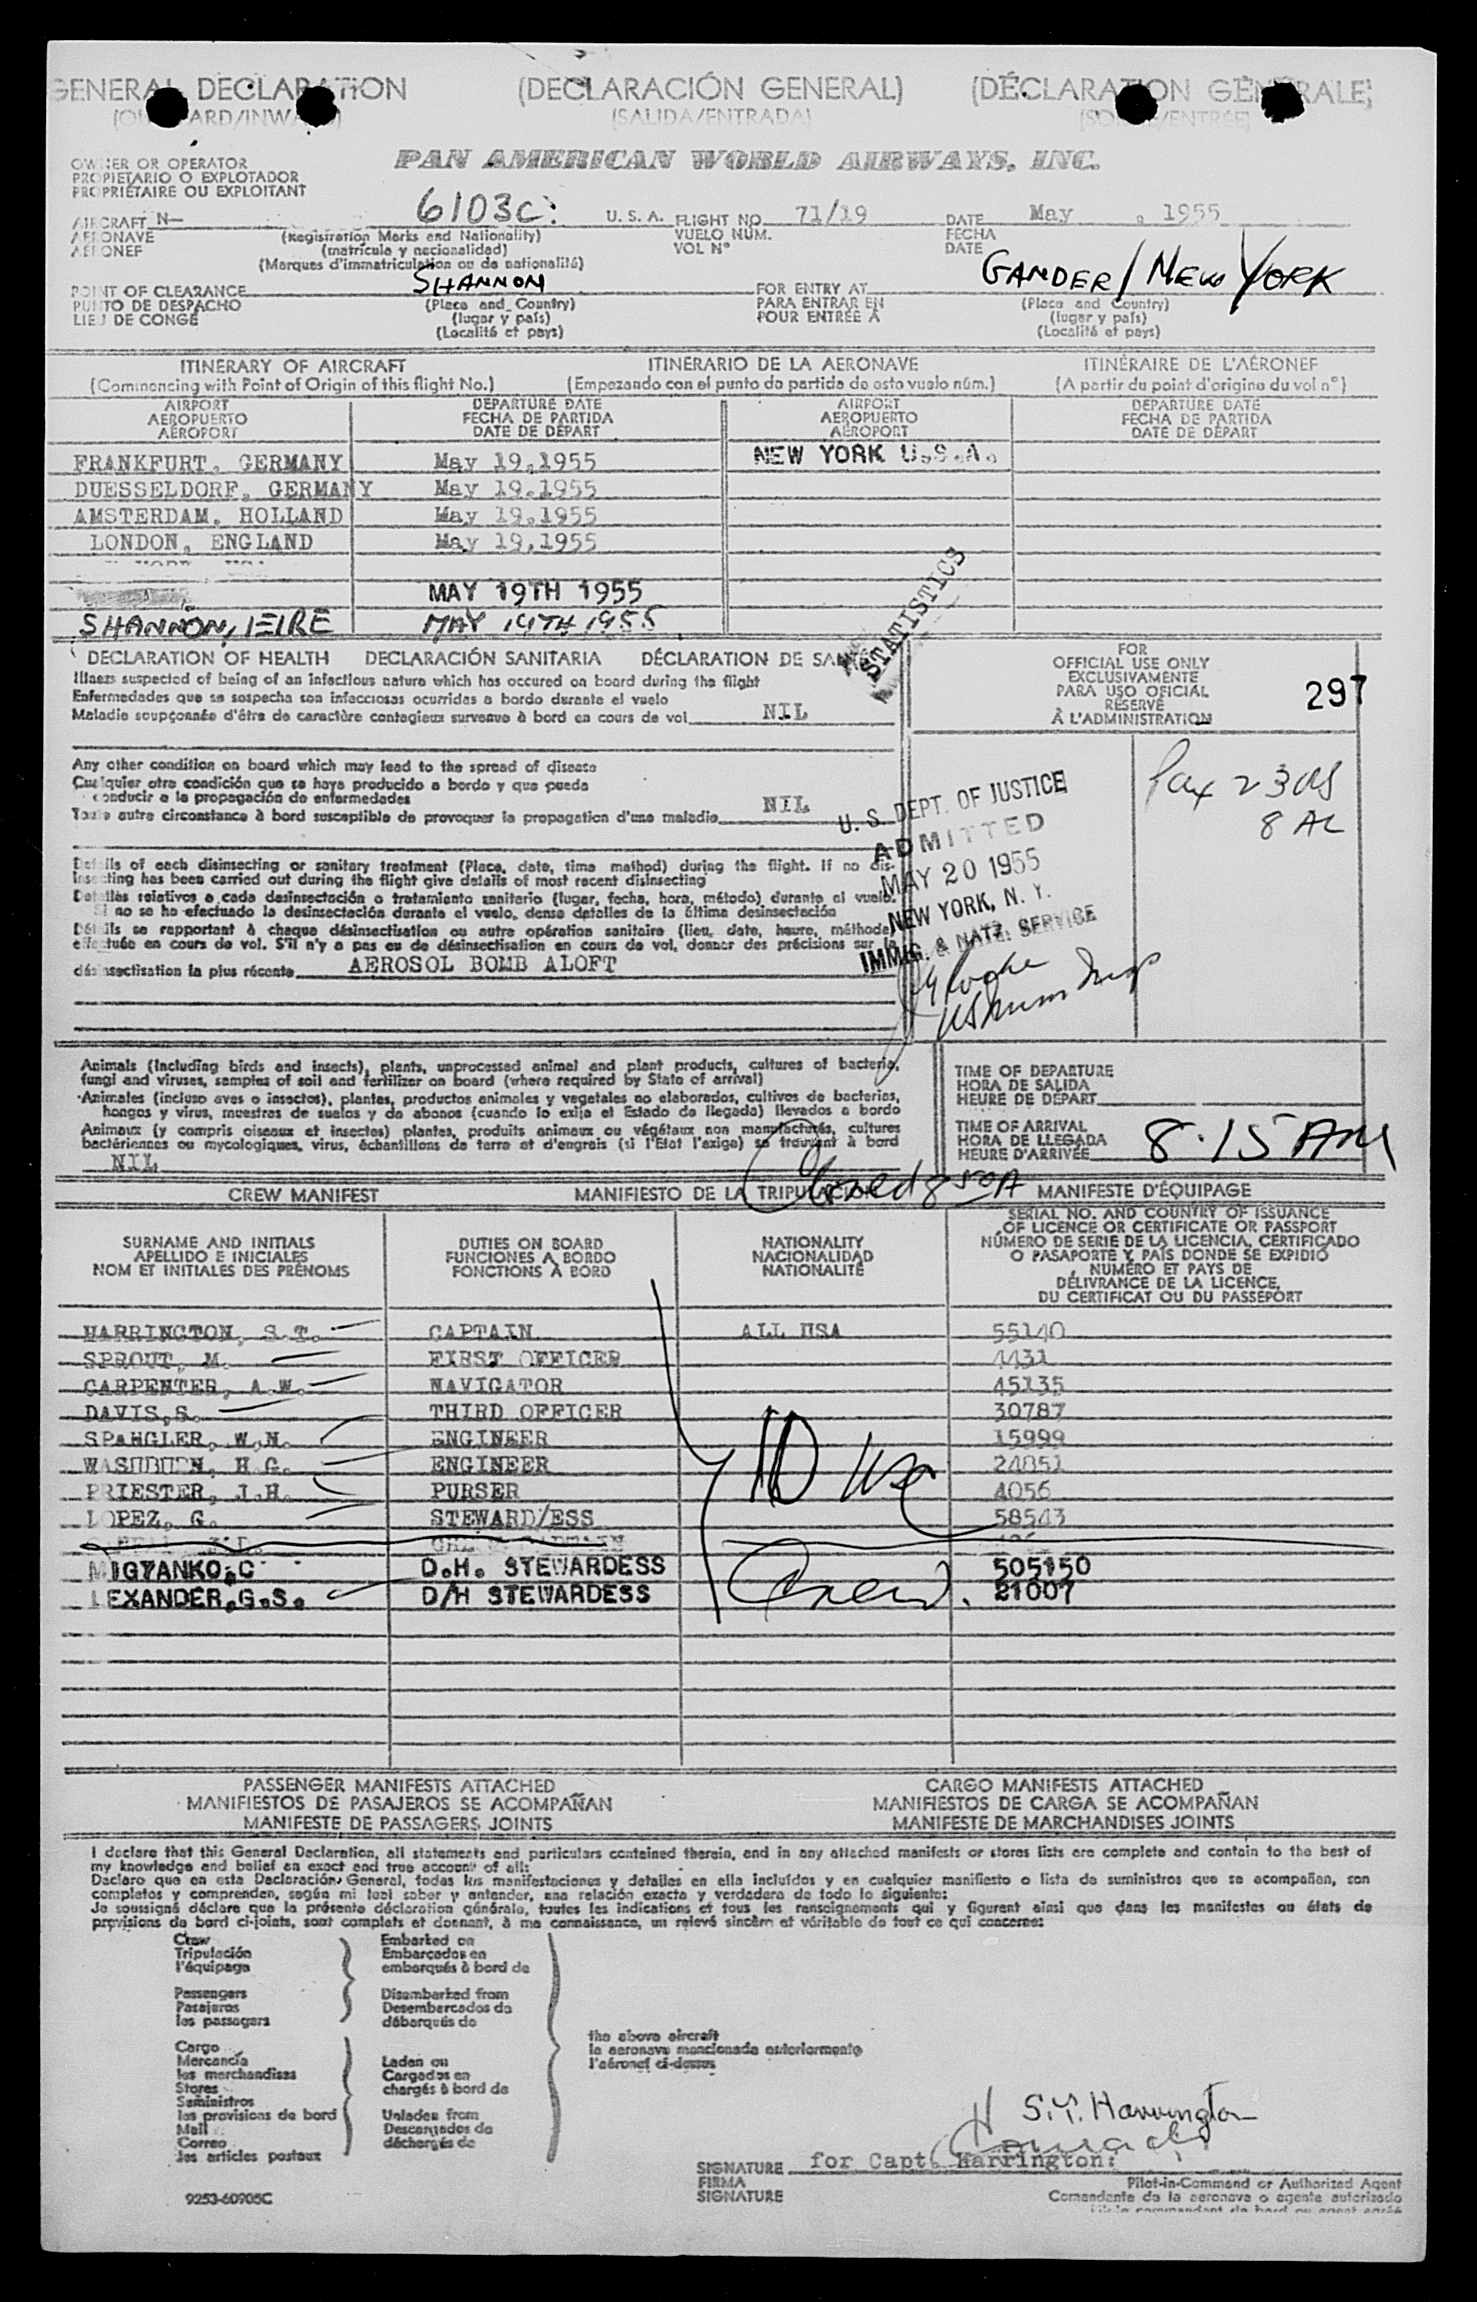 GENERAL DECLARATION (DECLARACIÓN GENERAL) (DÉCLARATION GÉNÉRALE)
(SALIDA/ENTRADA)
OWNER OR OPERATOR
PROPIETARIO O EXPLOTADOR
PROPRIÉTAIRE OU EXPLOITANT
PAN AMERICAN WORLD AIRWAYS, INC.
AIRCRAFT N— 6103C U. S. A. FLIGHT NO. 71/19 DATE May , 1955
AERONAVE (Registration Marks and Nationality) VUELO NÚM. FECHA
AÉRONEF (matrícula y nacionalidad) VOL Nº DATE
(Marques d'immatriculation ou de nationalité)
POINT OF CLEARANCE SHANNON FOR ENTRY AT GANDER/NEW YORK
PUNTO DE DESPACHO (Place and Country) PARA ENTRAR EN (Place and Country)
LIEU DE CONGÉ (lugar y país) POUR ENTRÉE À (lugar y país)
(Localité et pays) (Localité et pays)
ITINERARY OF AIRCRAFT ITINERARIO DE LA AERONAVE ITINÉRAIRE DE L'AÉRONEF
(Commencing with Point of Origin of this flight No.) (Empezando con el punto de partida de este vuelo núm.) (A partir du point d'origine du vol nº)
AIRPORT DEPARTURE DATE AIRPORT DEPARTURE DATE
AEROPUERTO FECHA DE PARTIDA AEROPUERTO FECHA DE PARTIDA
AÉROPORT DATE DE DÉPART AÉROPORT DATE DE DÉPART
FRANKFURT, GERMANY May 19,1955 NEW YORK U.S.A.
DUESSELDORF, GERMANY May 19.1955
AMSTERDAM, HOLLAND May 19.1955
LONDON, ENGLAND May 19,1955
MAY 19TH 1955
SHANNON, EIRE MAY 19TH 1955
STATISTICS
DECLARATION OF HEALTH DECLARACIÓN SANITARIA DÉCLARATION DE SANTÉ
Illness suspected of being of an infectious nature which has occured on board during the flight
Enfermedades que se sospecha son infecciosas ocurridas a bordo durante el vuelo
Maladie soupçonnée d'être de caractère contagieux survenue à bord en cours de vol NIL
FOR
OFFICIAL USE ONLY
EXCLUSIVAMENTE
PARA USO OFICIAL
RÉSERVÉ
À L'ADMINISTRATION
297
Any other condition on board which may lead to the spread of disease
Cualquier otra condición que se haya producido a bordo y que pueda
conducir a la propagación de enfermedades
Toute autre circonstance à bord susceptible de provoquer la propagation d'une maladie NIL
Pax 23 US
8 AL
U. S. DEPT. OF JUSTICE
ADMITTED
MAY 20 1955
NEW YORK, N. Y.
IMMIG. & NATZ. SERVICE
Details of each disinsecting or sanitary treatment (Place, date, time method) during the flight. If no dis-
insecting has been carried out during the flight give details of most recent disinsecting
Detalles relativos a cada desinsectación o tratamiento sanitario (lugar, fecha, hora, método) durante el vuelo.
Si no se ha efectuado la desinsectación durante el vuelo, dense detalles de la última desinsectación
Détails se rapportant à chaque désinsectisation ou autre opération sanitaire (lieu, date, heure, méthode)
effectuée en cours de vol. S'il n'y a pas eu de désinsectisation en cours de vol, donner des précisions sur la
désinsectisation la plus récente AEROSOL BOMB ALOFT
Animals (including birds and insects), plants, unprocessed animal and plant products, cultures of bacteria,
fungi and viruses, samples of soil and fertilizer on board (where required by State of arrival)
Animales (incluso aves o insectos), plantas, productos animales y vegetales no elaborados, cultivos de bacterias,
hongos y virus, muestras de suelos y de abonos (cuando lo exija el Estado de llegada) llevados a bordo
Animaux (y compris oiseaux et insectes) plantes, produits animaux ou végétaux non manufacturés, cultures
bactériennes ou mycologiques, virus, échantillons de terre et d'engrais (si l'Etat l'exige) se trouvant à bord
NIL
TIME OF DEPARTURE
HORA DE SALIDA
HEURE DE DÉPART
TIME OF ARRIVAL
HORA DE LLEGADA
HEURE D'ARRIVÉE 8·15 AM
850A
CREW MANIFEST MANIFIESTO DE LA TRIPULACIÓN MANIFESTE D'ÉQUIPAGE
SURNAME AND INITIALS
APELLIDO E INICIALES
NOM ET INITIALES DES PRÉNOMS
DUTIES ON BOARD
FUNCIONES A BORDO
FONCTIONS À BORD
NATIONALITY
NACIONALIDAD
NATIONALITÉ
SERIAL NO. AND COUNTRY OF ISSUANCE
OF LICENCE OR CERTIFICATE OR PASSPORT
NÚMERO DE SERIE DE LA LICENCIA, CERTIFICADO
O PASAPORTE Y PAÍS DONDE SE EXPIDIÓ
NUMÉRO ET PAYS DE
DÉLIVRANCE DE LA LICENCE,
DU CERTIFICAT OU DU PASSEPORT
HARRINGTON, S.T. CAPTAIN ALL USA 55140
SPROUT, M. FIRST OFFICER 4431
CARPENTER, A.W. NAVIGATOR 45135
DAVIS,S. THIRD OFFICER 30787
SPAHGLER, W.N. ENGINEER 15999
WASHBURN, H.G. ENGINEER 24851
PRIESTER, J.H. PURSER 4056
LOPEZ, G. STEWARD/ESS 58543
MIGYANKO,C D.H. STEWARDESS 505150
LEXANDER,G.S. D/H STEWARDESS 21007
10 USC
Crew.
PASSENGER MANIFESTS ATTACHED CARGO MANIFESTS ATTACHED
MANIFIESTOS DE PASAJEROS SE ACOMPAÑAN MANIFIESTOS DE CARGA SE ACOMPAÑAN
MANIFESTE DE PASSAGERS JOINTS MANIFESTE DE MARCHANDISES JOINTS
I declare that this General Declaration, all statements and particulars contained therein, and in any attached manifests or stores lists are complete and contain to the best of
my knowledge and belief an exact and true account of all:
Declaro que en esta Declaración General, todas las manifestaciones y detalles en ella incluídos y en cualquier manifiesto o lista de suministros que se acompañan, son
completos y comprenden, según mi leal saber y entender, una relación exacta y verdadera de todo lo siguiente:
Je soussigné déclare que la présente déclaration générale, toutes les indications et tous les renseignements qui y figurent ainsi que dans les manifestes ou états de
provisions de bord ci-joints, sont complets et donnent, à ma connaissance, un relevé sincère et véritable de tout ce qui concerne:
Crew Embarked on
Tripulación Embarcados en
l'équipage embarqués à bord de
Passengers Disembarked from
Pasajeros Desembarcados de
les passagers débarqués de
the above aircraft
la aeronave mencionada anteriormente
l'aéronef ci-dessus
Cargo
Mercancía Laden on
les marchandises Cargados en
Stores chargés à bord de
Suministros
les provisions de bord Unladen from
Mail Descargados de
Correo déchargés de
les articles postaux
S.T. Harrington
SIGNATURE for Capt. Harrington:
FIRMA Pilot-in-Command or Authorized Agent
SIGNATURE Comandante de la aeronave o agente autorizado
9253-60905C